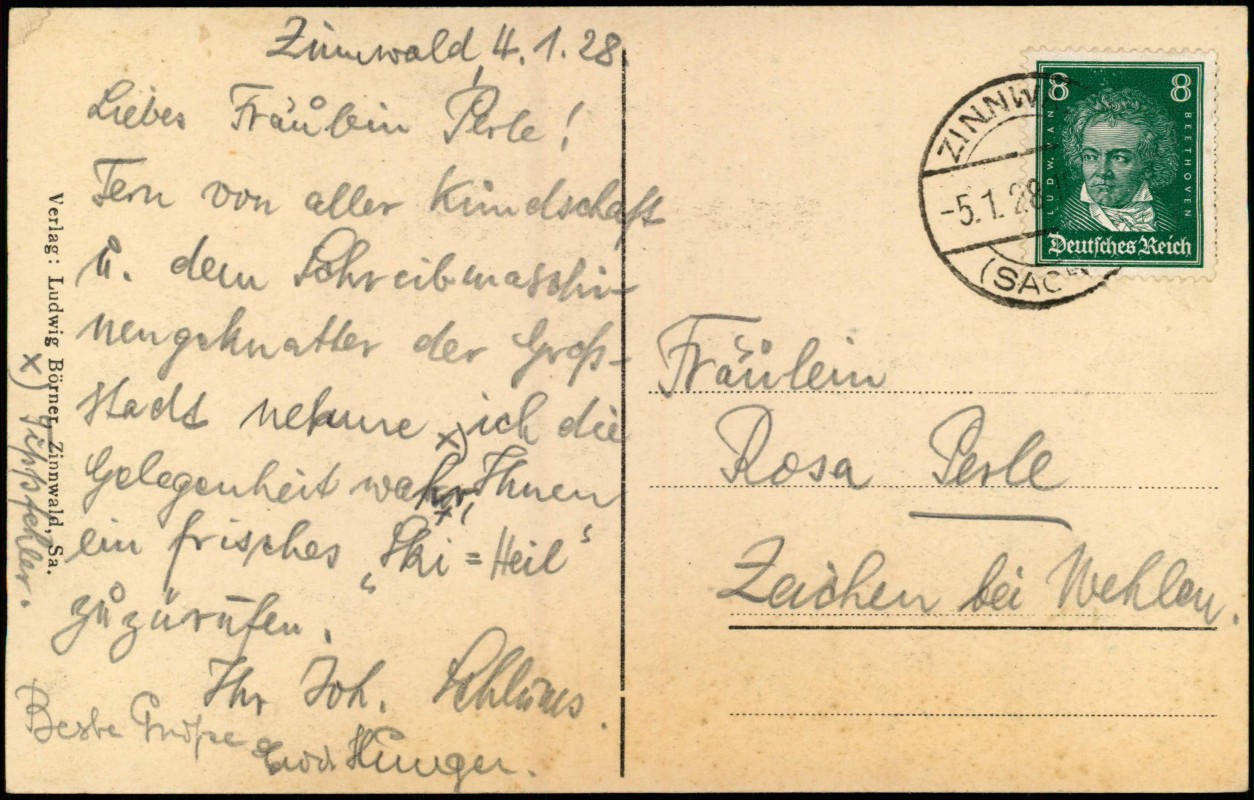 Zinnwald, 4.1.28
Liebes Fräulein Perle!
Fern von aller Kundschaft
u. dem Schreibmaschi-
nengeknatter der Groß-
stadt nehme x) ich die
Gelegenheit wahr, Ihnen
ein frisches „Ski=Heil“
zuzurufen.
Ihr Joh.
Beste Grüße
Hunger.
x) Tippfehler.
Verlag: Ludwig Börner, Zinnwald, Sa.
ZINNW
-5.1.28
(SACH
8 8
LUDW. VAN
BEETHOVEN
Deutsches Reich
Fräulein
Rosa Perle
Zeichen bei Wehlen.